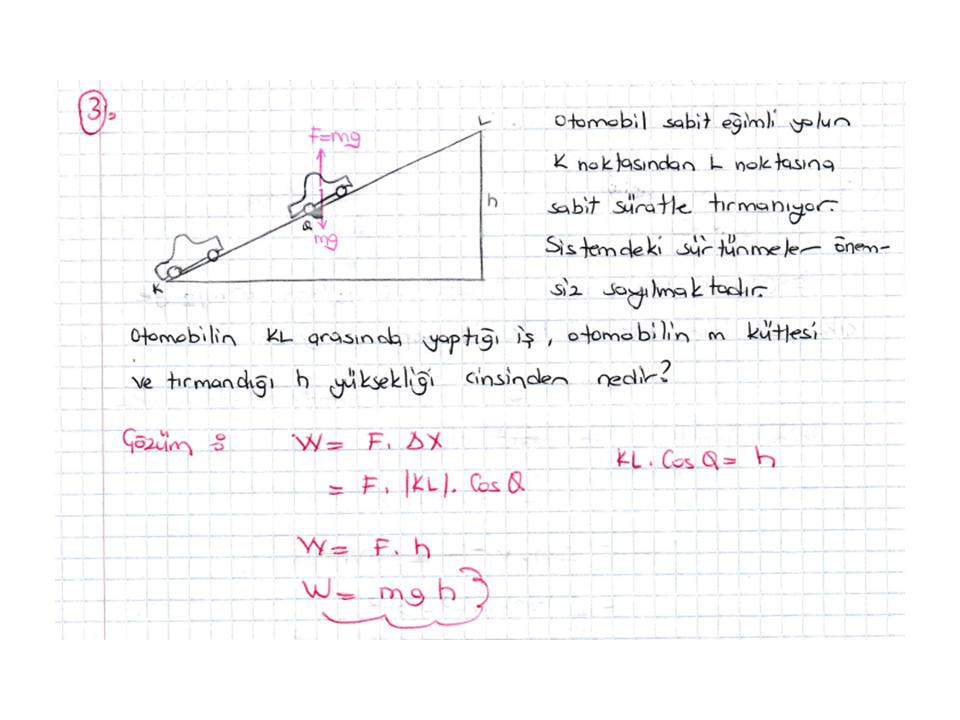 3.
L
F=mg
h
Q
mg
K
Otomobil sabit eğimli yolun
K noktasından L noktasına
sabit süratle tırmanıyor.
Sistemdeki sürtünmeler önem-
siz sayılmaktadır.
Otomobilin KL arasında yaptığı iş, otomobilin m kütlesi
ve tırmandığı h yüksekliği cinsinden nedir?
Çözüm :
W = F. ΔX
KL. Cos Q = h
= F. |KL|. Cos Q
W = F. h
W = mgh